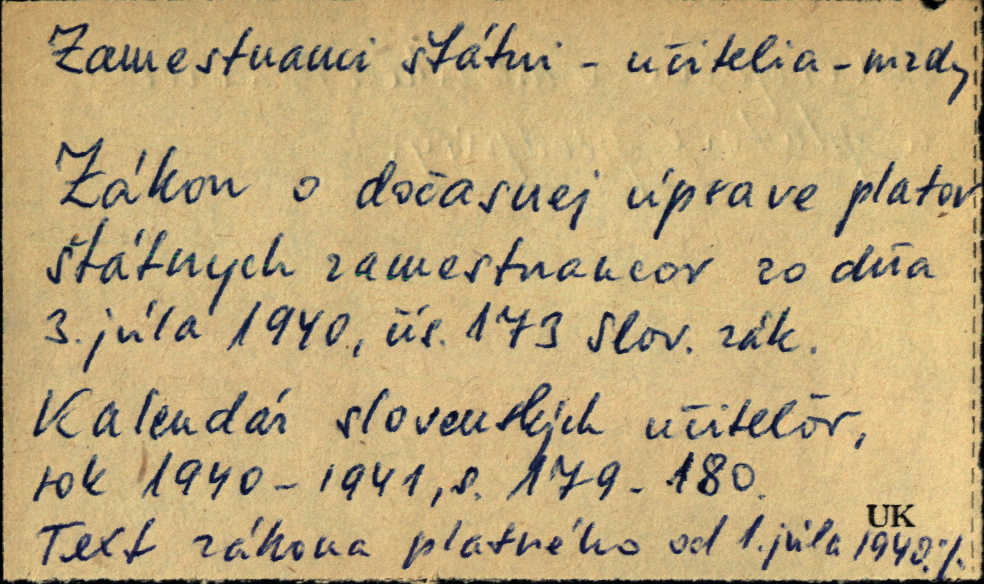 Zamestnanci štátni - učitelia - mzdy
Zákon o dočasnej úprave platov
štátnych zamestnancov zo dňa
3. júla 1940, čís. 173 Slov. zák.
Kalendár slovenských učiteľov,
rok 1940-1941, s. 179-180.
UK
Text zákona platného od 1. júla 1940./.